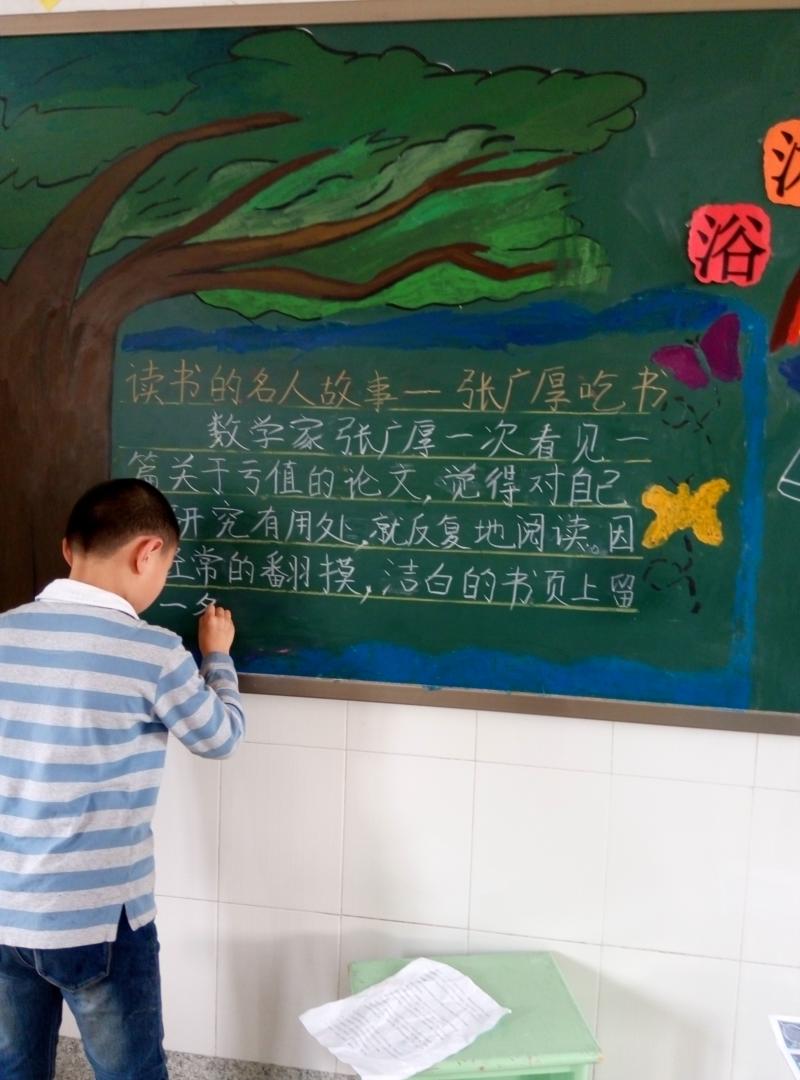 沐
浴
读书的名人故事一张广厚吃书
数学家张广厚一次看见一
篇关于亏值的论文，觉得对自己
研究有用处，就反复地阅读。因
经常的翻摸，洁白的书页上留
一